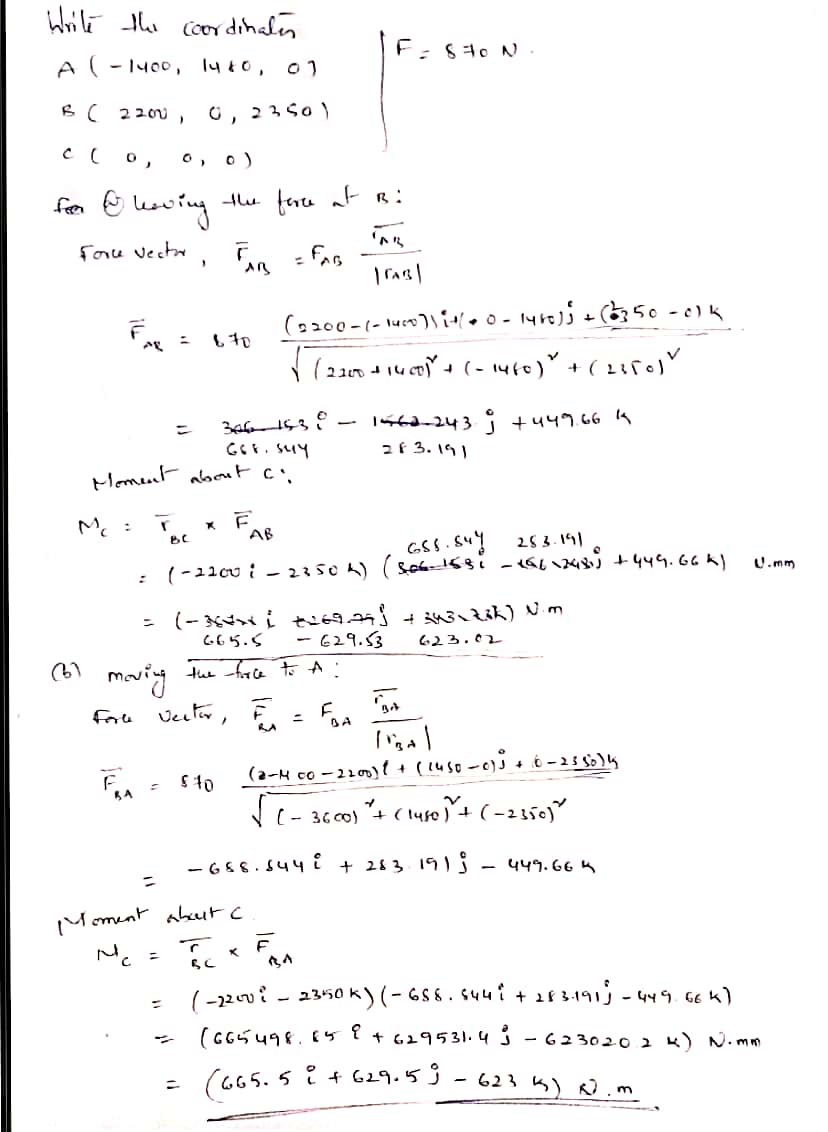 Write the coordinates
A (-1400, 1480, 0)
F = 870 N.
B ( 2200, 0, 2350)
C ( 0, 0, 0)
for @ moving the force at B:
Force vector, F̅AB = FAB r̅AB / |rAB|
F̅AB = 870 (2200-(-1400))i + (0-1480)j + (2350-0)k / √((2200+1400)² + (-1480)² + (2350)²
= 306.153 i - 1562.243 j + 449.66 k
688.844 283.191
Moment about C:
Mc = r̅BC × F̅AB
688.844 283.191
= (-2200 i - 2350 k) ( i - j + 449.66 k) N.mm
= ( i j + k) N.m
665.5 - 629.53 623.02
(b) moving the force to A:
Force Vector, F̅BA = FBA r̅BA / |rBA|
F̅BA = 870 ( -2200)i + (1480-0)j + 0-2350)k / √((-3600)² + (1480)² + (-2350)²
= -688.844 i + 283.191 j - 449.66 k
Moment about C
Mc = r̅BC × F̅BA
= (-2200 i - 2350 k) (-688.844 i + 283.191 j - 449.66 k)
= (665498.85 i + 629531.4 j - 623020.2 k) N.mm
= (665.5 i + 629.5 j - 623 k) N.m